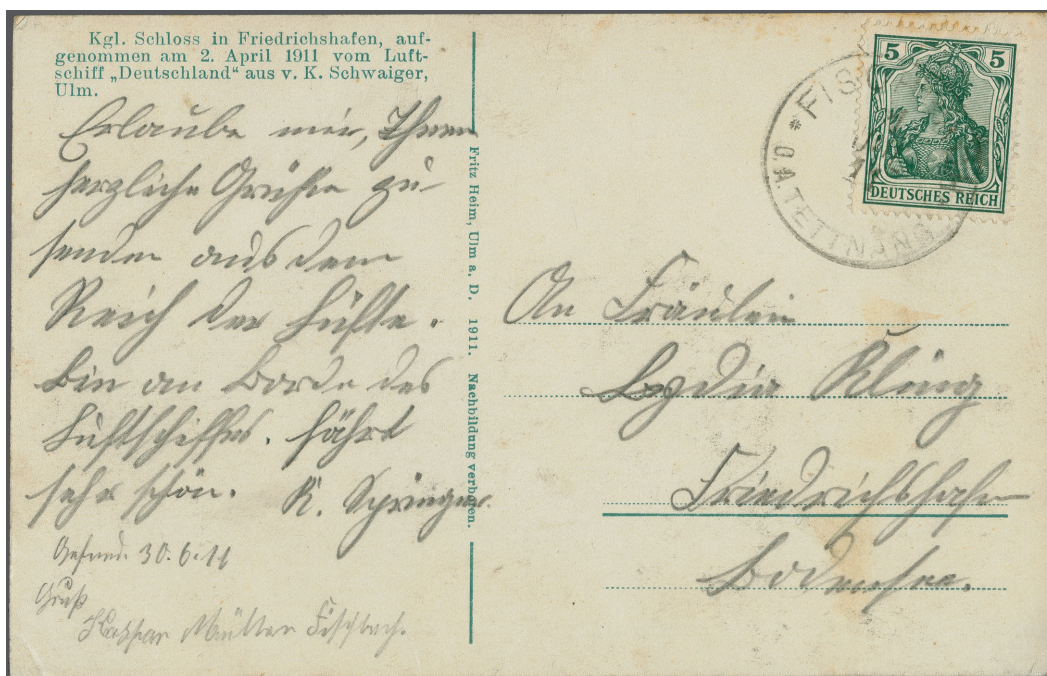 Kgl. Schloss in Friedrichshafen, auf-
genommen am 2. April 1911 vom Luft-
schiff „Deutschland“ aus v. K. Schwaiger,
Ulm.
Erlaube mir, Ihnen
herzliche Grüße zu
senden aus dem
Reich der Lüfte.
Bin an Borde des
Luftschiffes. Fährt
sehr schön. K. Springer
Gefund. 30.6.11
Gruß
Kaspar Müller Fischbach.
Fritz Heim, Ulm a. D. 1911. Nachbildung verboten.
5 5
DEUTSCHES REICH
* FISC
O.A. TETTNANG
An Fräulein
Lydia Kling
Friedrichshafen
Bodensee.